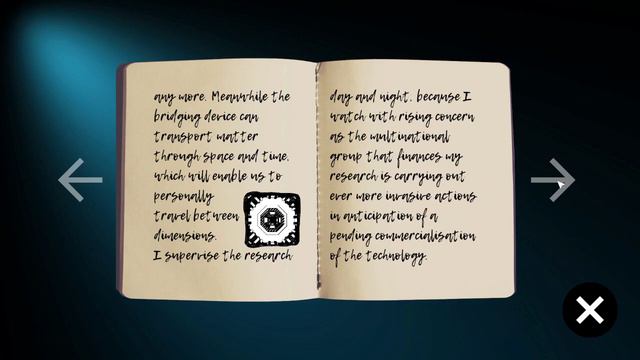 any more. Meanwhile the
bridging device can
transport matter
through space and time,
which will enable us to
personally
travel between
dimensions.
I supervise the research
day and night, because I
watch with rising concern
as the multinational
group that finances my
research is carrying out
ever more invasive actions
in anticipation of a
pending commercialisation
of the technology.